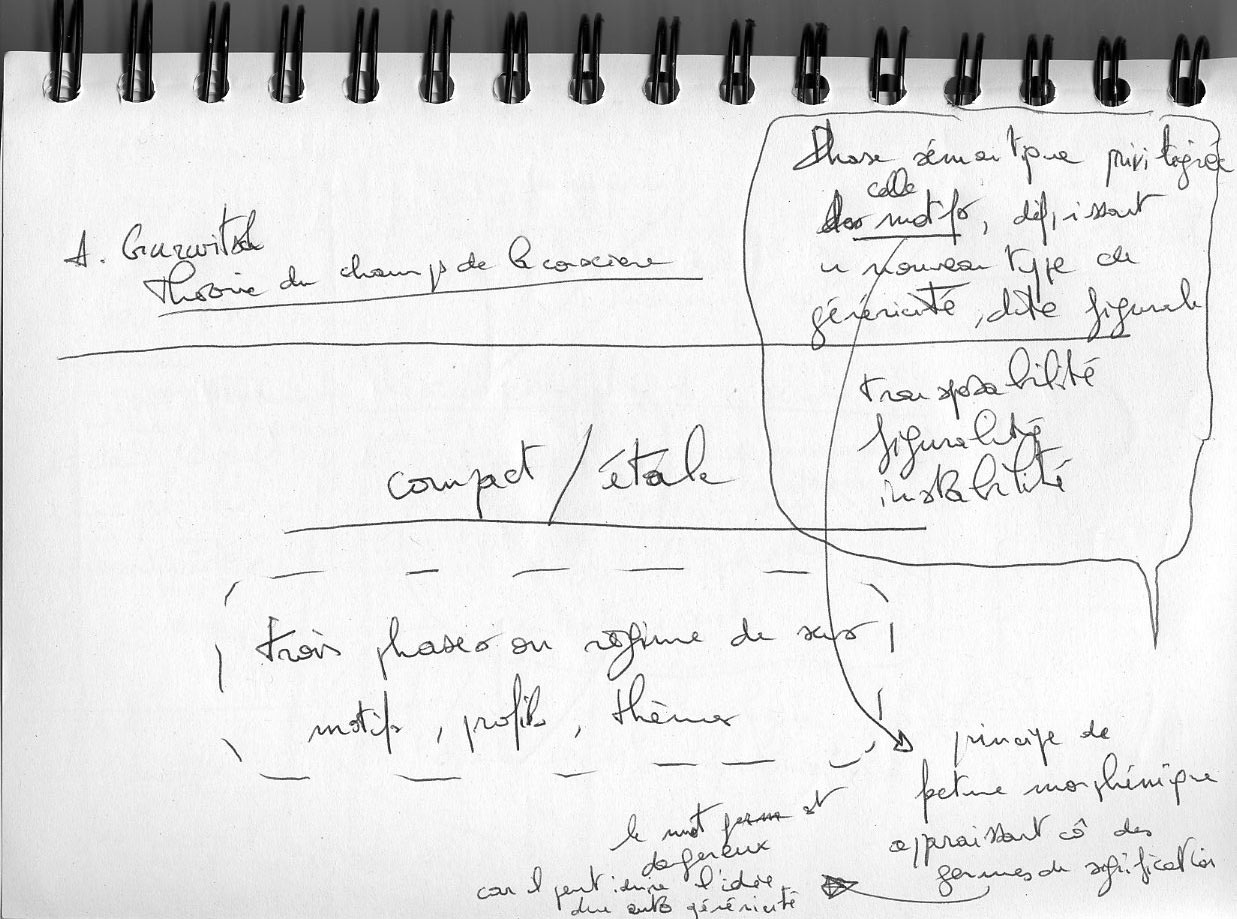 A. Gurwitsch
Théorie du champ de la conscience
Phase sémantique privilégiée
celle
des motifs, définissant
un nouveau type de
généricité, dite figurale
transposabilité
figuralité
instabilité
compact / étale
trois phases ou régime de sens
motifs, profils, thèmes
principe de
facture morphémique
apparaissant cô des
germes de signification
le mot germe est
dangereux
car il peut induire l'idée
d'une auto généricité